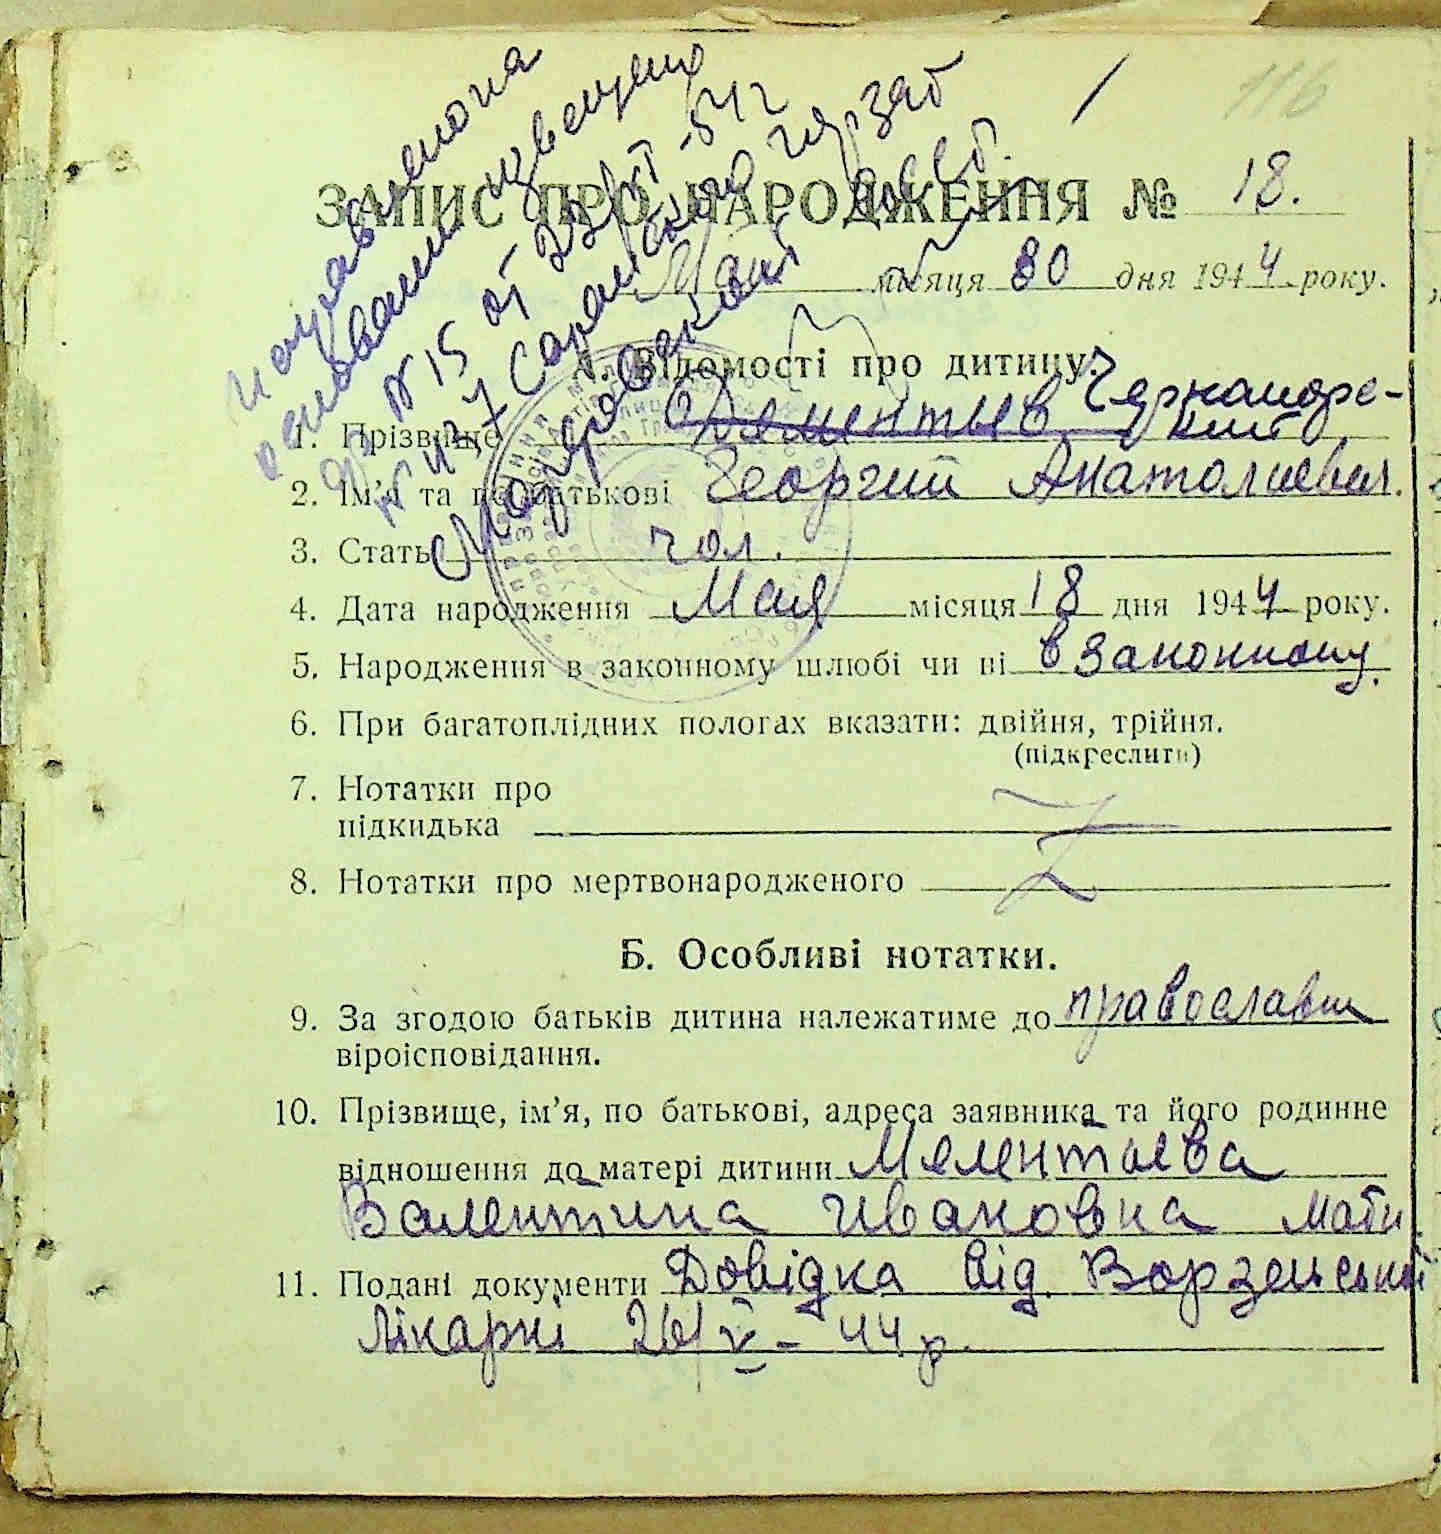 116
исправлена на
основании извещения
№ 15 от 22/VI-54 г
№ 417 Саранский гор заг
Мордовской АССР.
ЗАПИС ПРО НАРОДЖЕННЯ № 18.
Мая місяця 30 дня 1944 року.
А. Відомості про дитину.
1. Прізвище Мелентьев
2. Ім'я та по батькові Георгий Анатолиевич.
3. Стать чол.
4. Дата народження Мая місяця 18 дня 1944 року.
5. Народження в законному шлюбі чи ні в законному.
6. При багатоплідних пологах вказати: двійня, трійня.
(підкреслити)
7. Нотатки про
підкидька
8. Нотатки про мертвонародженого
Б. Особливі нотатки.
9. За згодою батьків дитина належатиме до православн
віроісповідання.
10. Прізвище, ім'я, по батькові, адреса заявника та його родинне
відношення до матері дитини Мелентьева
Валентина Ивановна мати
11. Подані документи Довідка від Ворзельської
лікарні 26/V-44 р.